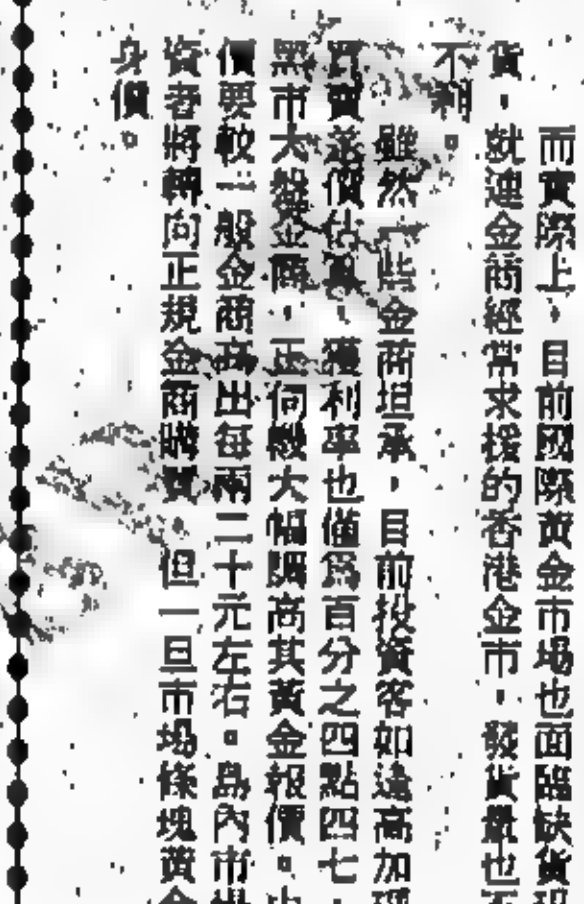 而實際上，目前國際黃金市場也面臨缺貨
貨，就連金商經常求援的香港金市，發貨量也
不利。
雖然一些金商坦承，目前投資客如逢高加
買賣差價估算，獲利率也僅為百分之四點四七，
黑市大盤金商，正伺機大幅調高其黃金報價。
價要較一般金商高出每兩二十元左右。島內市
資者將轉向正規金商購買 但一旦市場條塊黃金
身價。